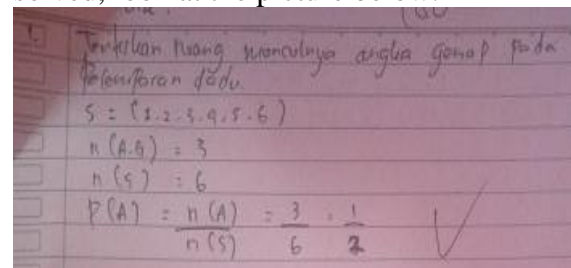 1. Tentukan ruang munculnya angka genap pada
pelemparan dadu.
S = (1.2.3.4.5.6)
n (A.G) = 3
n (S) = 6
P(A) = n (A) / n (S) = 3 / 6 = 1 / 2